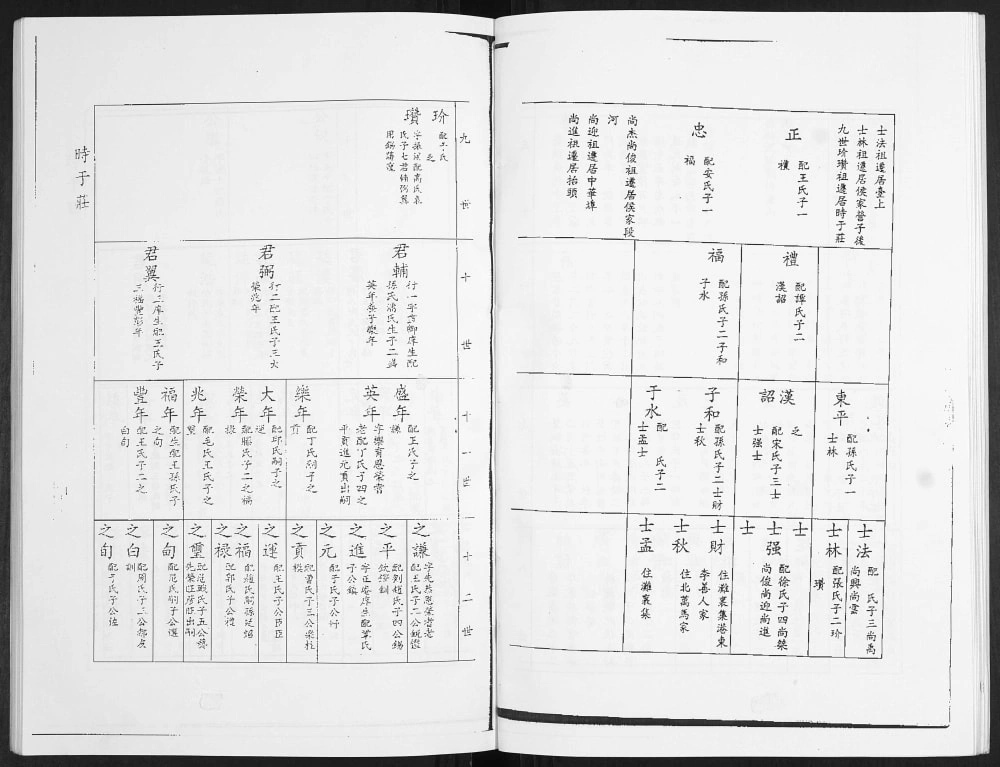 士法祖遷居臺上
士林祖遷居侯家營子後
九世珍瓚祖遷居時于莊
正
配王氏子一
禮
忠
配安氏子一
福
尚杰尚俊祖遷居侯家段
河
尚迎祖遷居中華埠
尚進祖遷居抬頭
禮
配譚氏子二
漢詔
福
配孫氏子二子和
子水
東平
配孫氏子一
士林
漢
乏
詔
配宋氏子三士
士强士
子和
配孫氏子二士財
士秋
于水
配 氏子二
士孟士
士法
配 氏子三尚禹
尚興尚雲
士林
配張氏子二玠
瓚
士
士强
配徐氏子四尚桀
尚俊尚迎尚進
士
士財
住灘裏集港東
李善人家
士秋
住北萬馬家
士孟
住灘裏集
九世
玠
配于氏
乏
瓚
字振斌配高氏袁
氏子七君輔弼翼
十世
君輔
孫氏潘氏生子二盛
英年養子樂年
君弼
行二配王氏子三大
榮兆年
君翼
行三庠生配王氏子
三福豐彭年
十一世
盛年
配王氏子之
謙
英年
字樂育恩榮耆
老配丁氏子四之
平貢進元貢出嗣
樂年
配丁氏嗣子之
貢
大年
配邱氏嗣子之
運
榮年
配滕氏子二之福
祿
兆年
配毛氏王氏子之
璽
福年
之旬
豐年
配王氏子二之
白旬
十二世
之謙
配王氏子二公毓
之平
配劉趙氏子四公錫
欽鐸釧
之進
字正庵庠生配葉氏
子公鎮
之元
配于氏子公行
之貢
配曹氏子三公樂柱
之運
配王氏子公臣
之福
之祿
配郭氏子公禮
之璽
之旬
配范氏嗣子公選
之白
訓
之旬
配于氏子公佐
時于莊